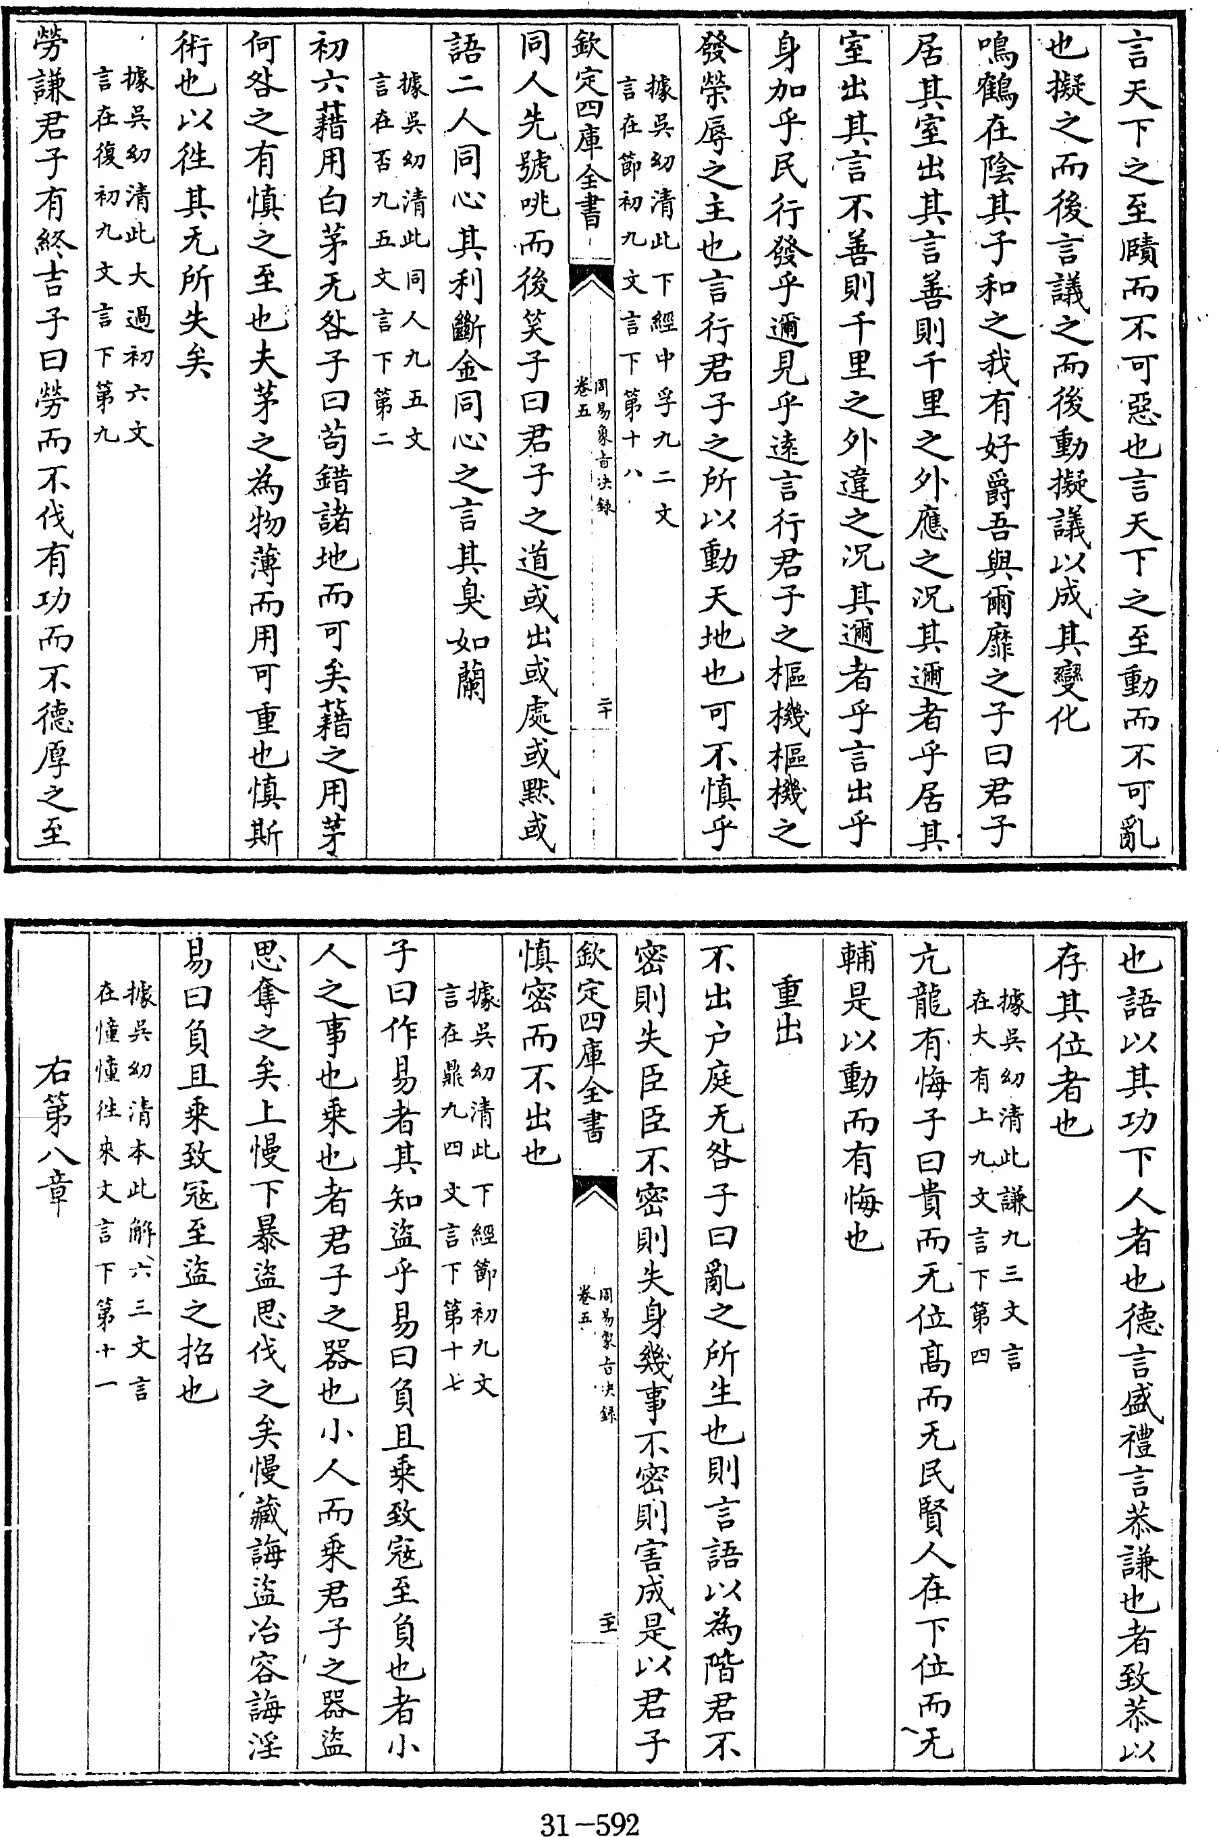 言天下之至賾而不可惡也言天下之至動而不可亂
也擬之而後言議之而後動擬議以成其變化
鳴鶴在陰其子和之我有好爵吾與爾靡之子曰君子
居其室出其言善則千里之外應之况其邇者乎居其
室出其言不善則千里之外違之况其邇者乎言出乎
身加乎民行發乎邇見乎遠言行君子之樞機樞機之
發榮辱之主也言行君子之所以動天地也可不慎乎
據吳幼清此下經中孚九二文
言在節初九文言下第十八
欽定四庫全書
周易象旨決録
卷五
二十
同人先號咷而後笑子曰君子之道或出或處或默或
語二人同心其利斷金同心之言其臭如蘭
據吳幼清此同人九五文
言在否九五文言下第二
初六藉用白茅无咎子曰茍錯諸地而可矣藉之用茅
何咎之有慎之至也夫茅之為物薄而用可重也慎斯
術也以徃其无所失矣
據吳幼清此大過初六文
言在復初九文言下第九
勞謙君子有終吉子曰勞而不伐有功而不德厚之至
也語以其功下人者也德言盛禮言恭謙也者致恭以
存其位者也
據吳幼清此謙九三文言
在大有上九文言下第四
亢龍有悔子曰貴而无位髙而无民賢人在下位而无
輔是以動而有悔也
重出
不出户庭无咎子曰亂之所生也則言語以為階君不
密則失臣臣不密則失身幾事不密則害成是以君子
欽定四庫全書
周易象旨決録
卷五
二十一
慎密而不出也
據吳幼清此下經節初九文
言在鼎九四文言下第十七
子曰作易者其知盜乎易曰負且乗致寇至負也者小
人之事也乗也者君子之器也小人而乗君子之器盜
思奪之矣上慢下暴盜思伐之矣慢藏誨盜冶容誨淫
易曰負且乗致寇至盜之招也
據吳幼清本此解六三文言
在憧憧徃來文言下第十一
右第八章
31-592